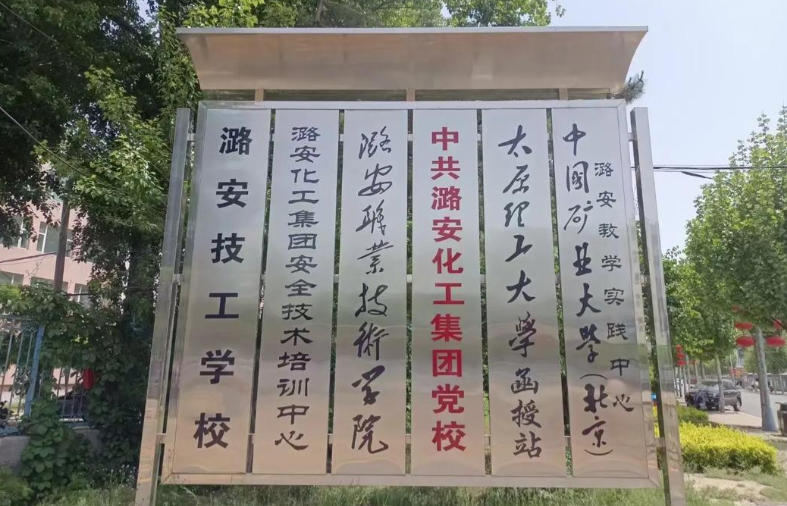 中国矿业大学（北京）
潞安教学实践中心
太原理工大学函授站
中共潞安化工集团党校
潞安职业技术学院
潞安化工集团安全技术培训中心
潞安技工学校